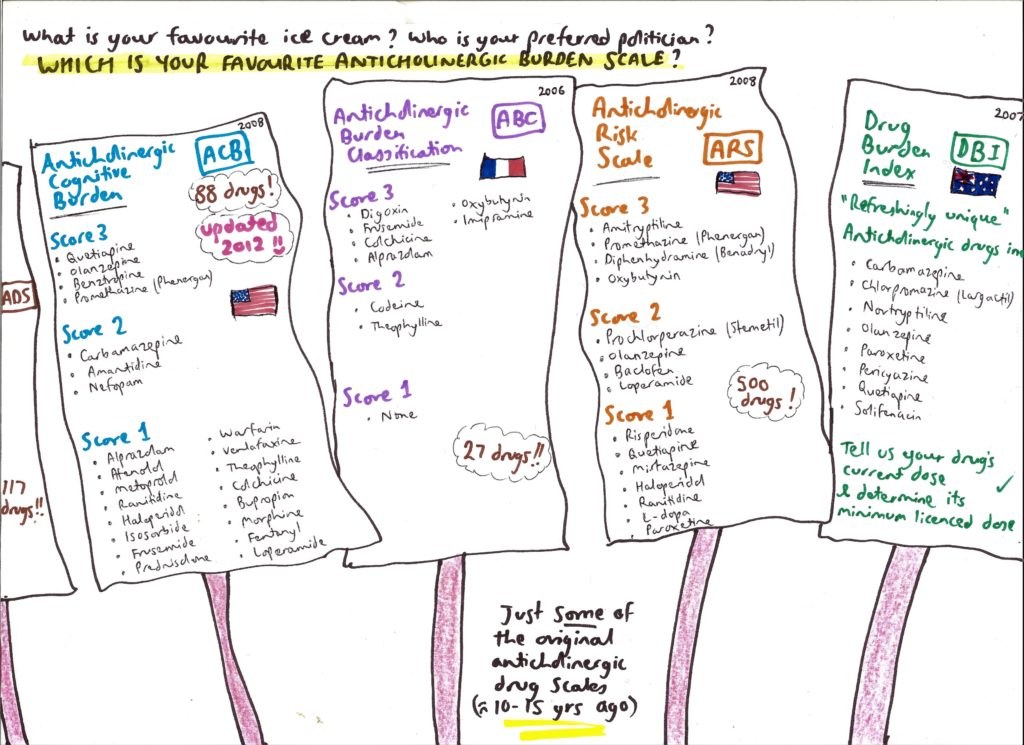 What is your favourite ice cream? Who is your preferred politician?
WHICH IS YOUR FAVOURITE ANTICHOLINERGIC BURDEN SCALE?
ADS
117
drugs!!
2008
Anticholinergic
Cognitive
Burden
ACB
88 drugs!
updated
2012 !!
Score 3
• Quetiapine
• Olanzepine
• Benztropine
• Promethazine (Phenergan)
Score 2
• Carbamazepine
• Amantidine
• Nefopam
Score 1
• Alprazolam
• Atenolol
• Metoprolol
• Ranitidine
• Haloperidol
• Isosorbide
• Frusemide
• Prednisolone
• Warfarin
• Venlafaxine
• Theophylline
• Colchicine
• Bupropion
• Morphine
• Fentanyl
• Loperamide
2006
Anticholinergic
Burden
Classification
ABC
Score 3
• Digoxin
• Frusemide
• Colchicine
• Alprazolam
• Oxybutynin
• Imipramine
Score 2
• Codeine
• Theophylline
Score 1
• None
27 drugs!!
2008
Anticholinergic
Risk
Scale
ARS
Score 3
• Amitryptiline
• Promethazine (Phenergan)
• Diphenhydramine (Benadryl)
• Oxybutynin
Score 2
• Prochlorperazine (Stemetil)
• Olanzepine
• Baclofen
• Loperamide
500
drugs!
Score 1
• Risperidone
• Quetiapine
• Mirtazepine
• Haloperidol
• Ranitidine
• L-dopa
• Paroxetine
2007
Drug
Burden
Index
DBI
"Refreshingly unique"
Anticholinergic drugs in
• Carbamazepine
• Chlorpromazine (Largactil)
• Nortryptiline
• Olanzepine
• Paroxetine
• Pericyazine
• Quetiapine
• Solifenacin
Tell us your drug's
current dose
& determine its
minimum licenced dose
Just some of
the original
anticholinergic
drug scales
(≈ 10-15 yrs ago)